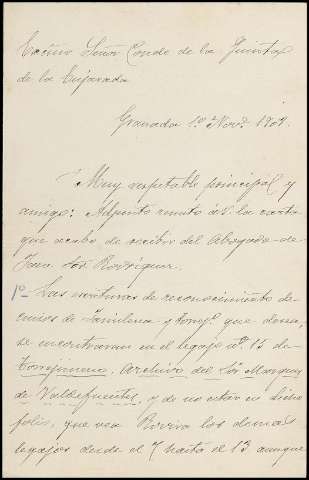 Excmo Señor Conde de la Quinta
de la Enjarada
Granada 1º Novº 1909.
Muy respetable principal y
amigo: Adjunto remito á V. la carta
que acabo de recibir del Abogado de
Jaen Sor Rodriguez.
1º Las escrituras de reconocimiento de
censos de Jamilena y Torrejº que desea,
se encontraran en el legajo nº 15 de
Torrejimeno, Archivo del Sor Marques
de Valdefuentes, y de no estar en dicho
, que vea los demás
legajos desde el 7 hasta el 13 aunque